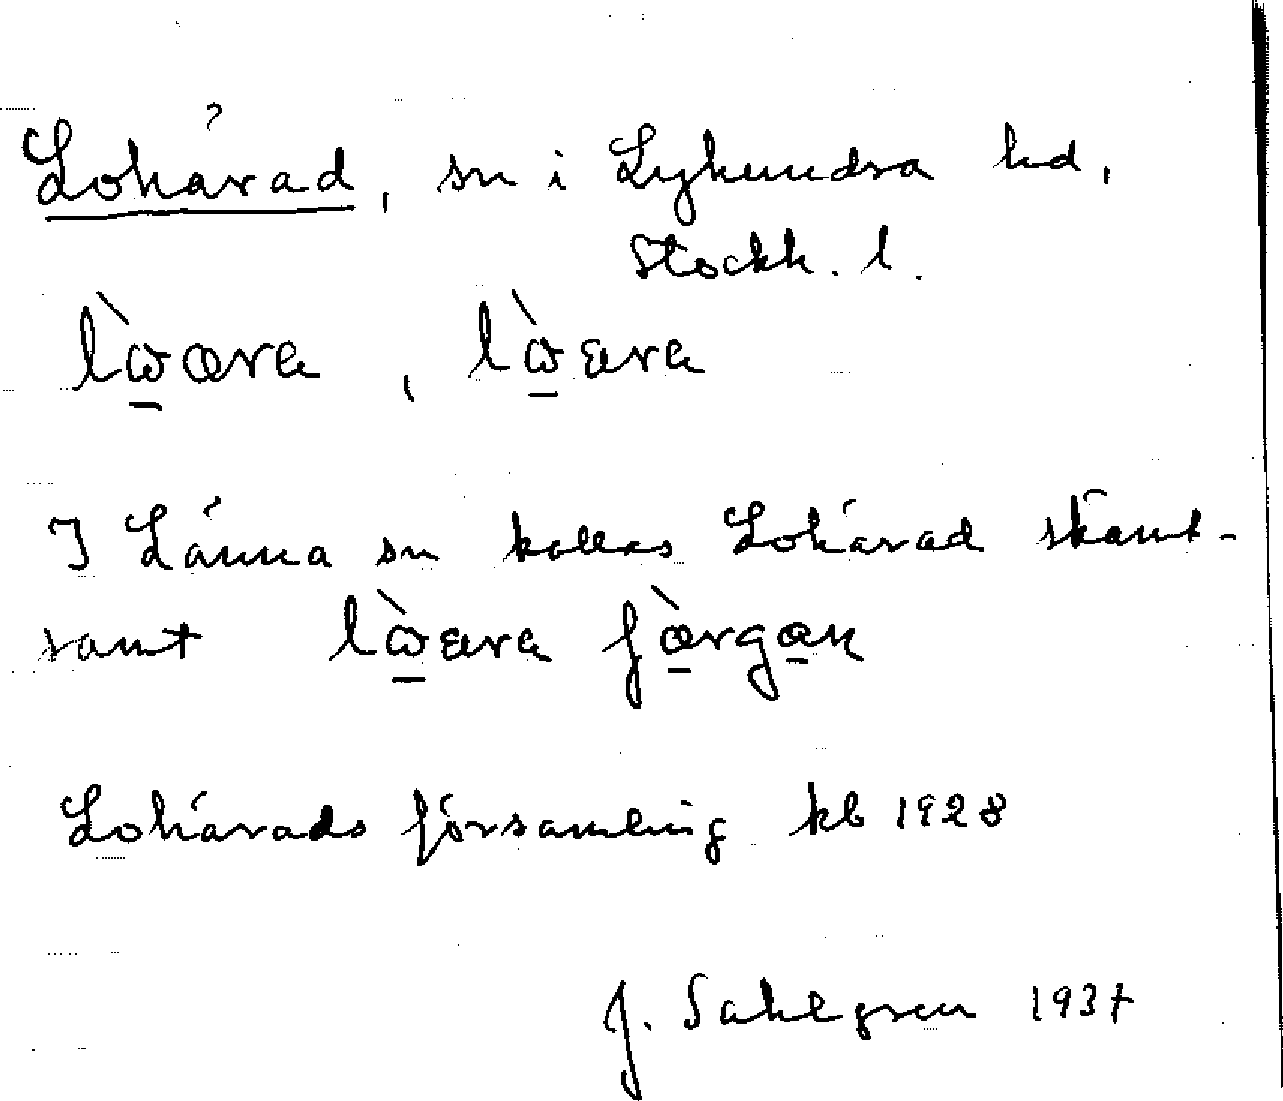 Lohärad, sn i Lyhundra hd,
Stockh. l.
lὼæra, lὼɛra
I Länna sn kallas Lohärad skämt-
samt lὼɛra fæ̀rgan
Lohärads församling kb 1928
J. Sahlgren 1937